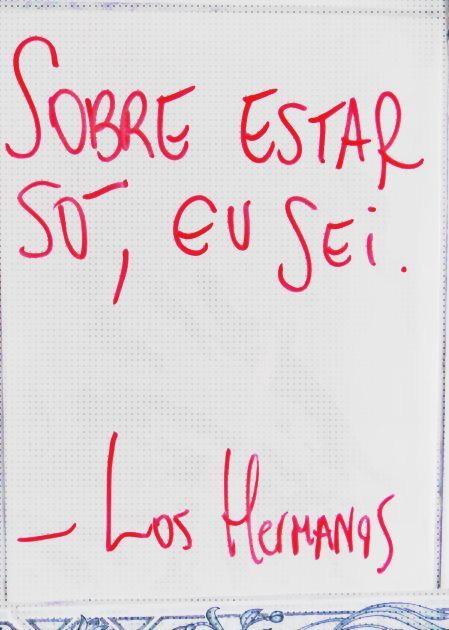 SOBRE ESTAR
SÓ, EU SEi.
– Los HerMANOS